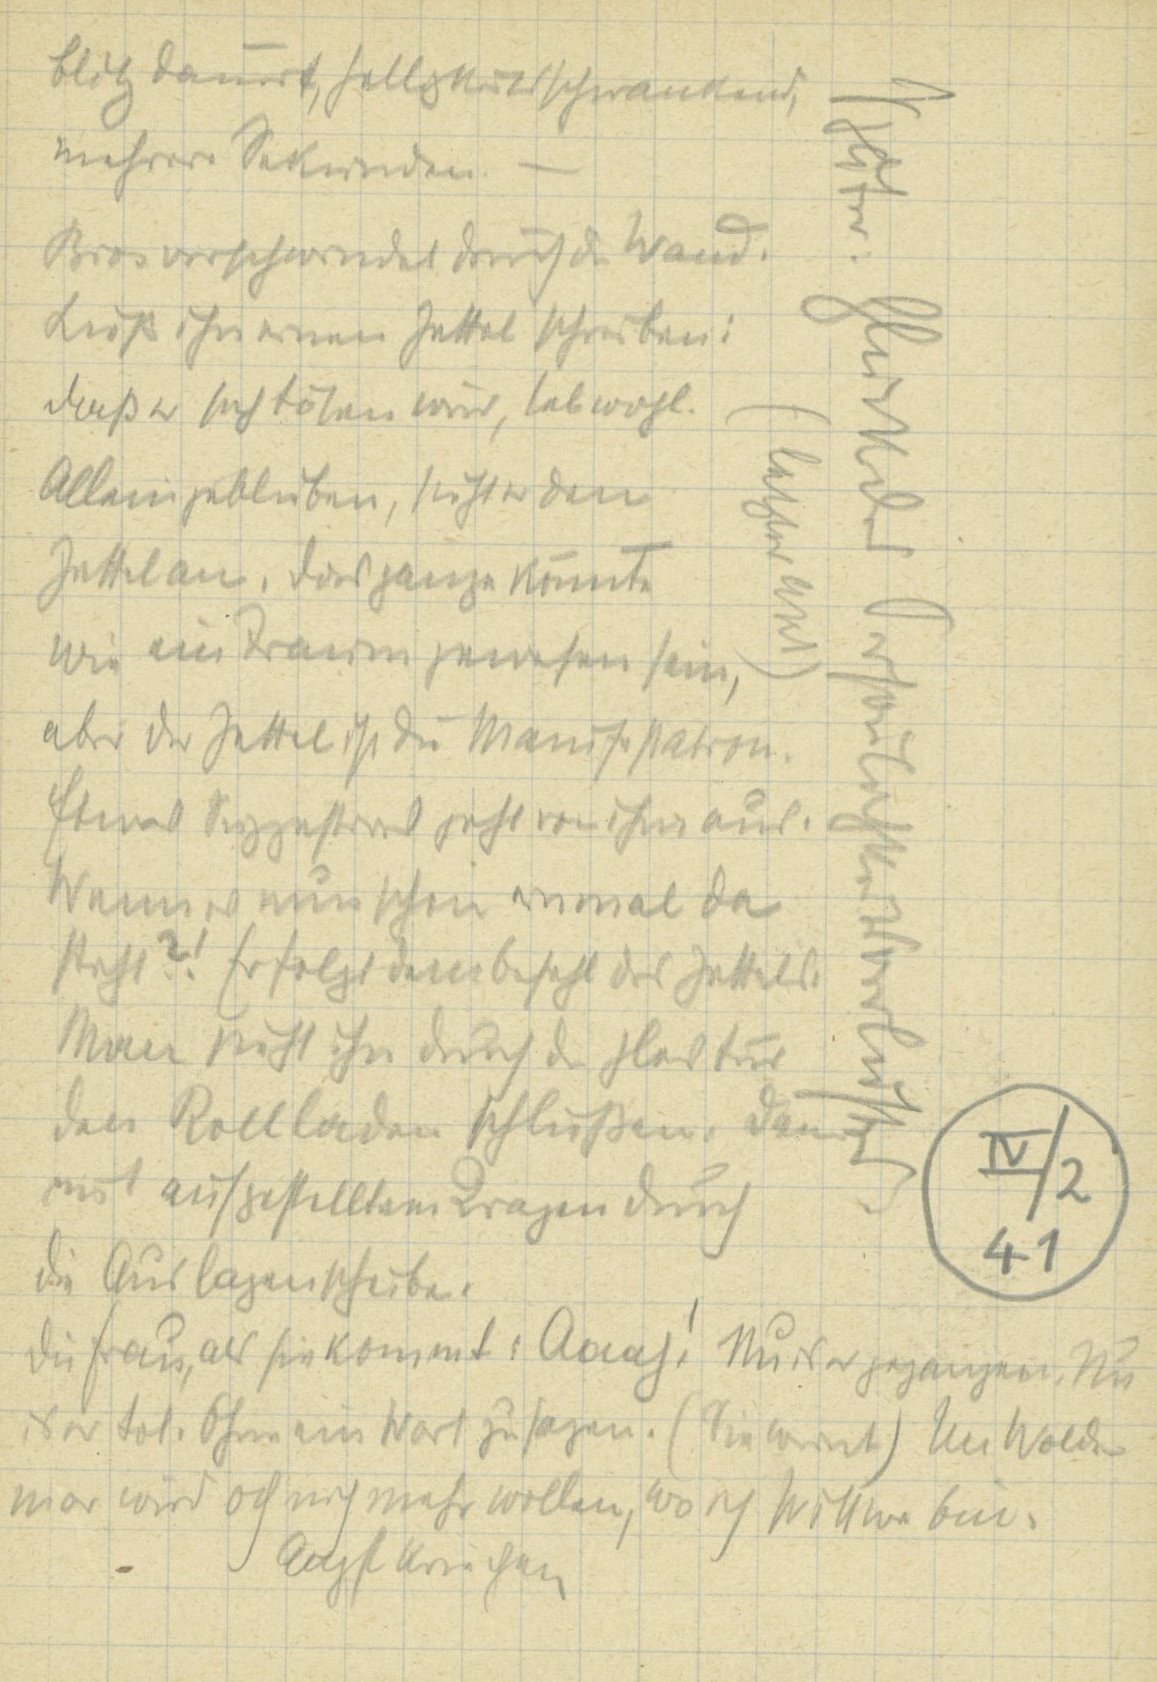 blitz dauert, helligkeitsschwankend,
mehrere Sekunden. —
verschwindet durch die Wand.
Läßt ihn einen Zettel schreiben:
daß er sich töten wird, lebwohl.
Allein geblieben, sieht er den
Zettel an. Das ganze könnte
wie ein Traum gewesen sein,
aber der Zettel ist die Manifestation.
Etwas Suggestives geht von ihm aus.
Wenn es nun schon einmal da
steht?! Er folgt dem befehl des Zettels.
Man sieht ihn durch die glastür
den Rollladen schließen. Dann
mit aufgestelltem Kragen durch
die Auslagenscheibe.
Die Frau, als sie kommt: Aaah! Nu is er gegangen. Nu
is er tot. Ohne ein Wort zu sagen. (Sie weint) Un Wolde-
mar wird och nich mehr wollen, wo ich Wittwe bin.
Später:
(letzter Akt)
IV/2
41